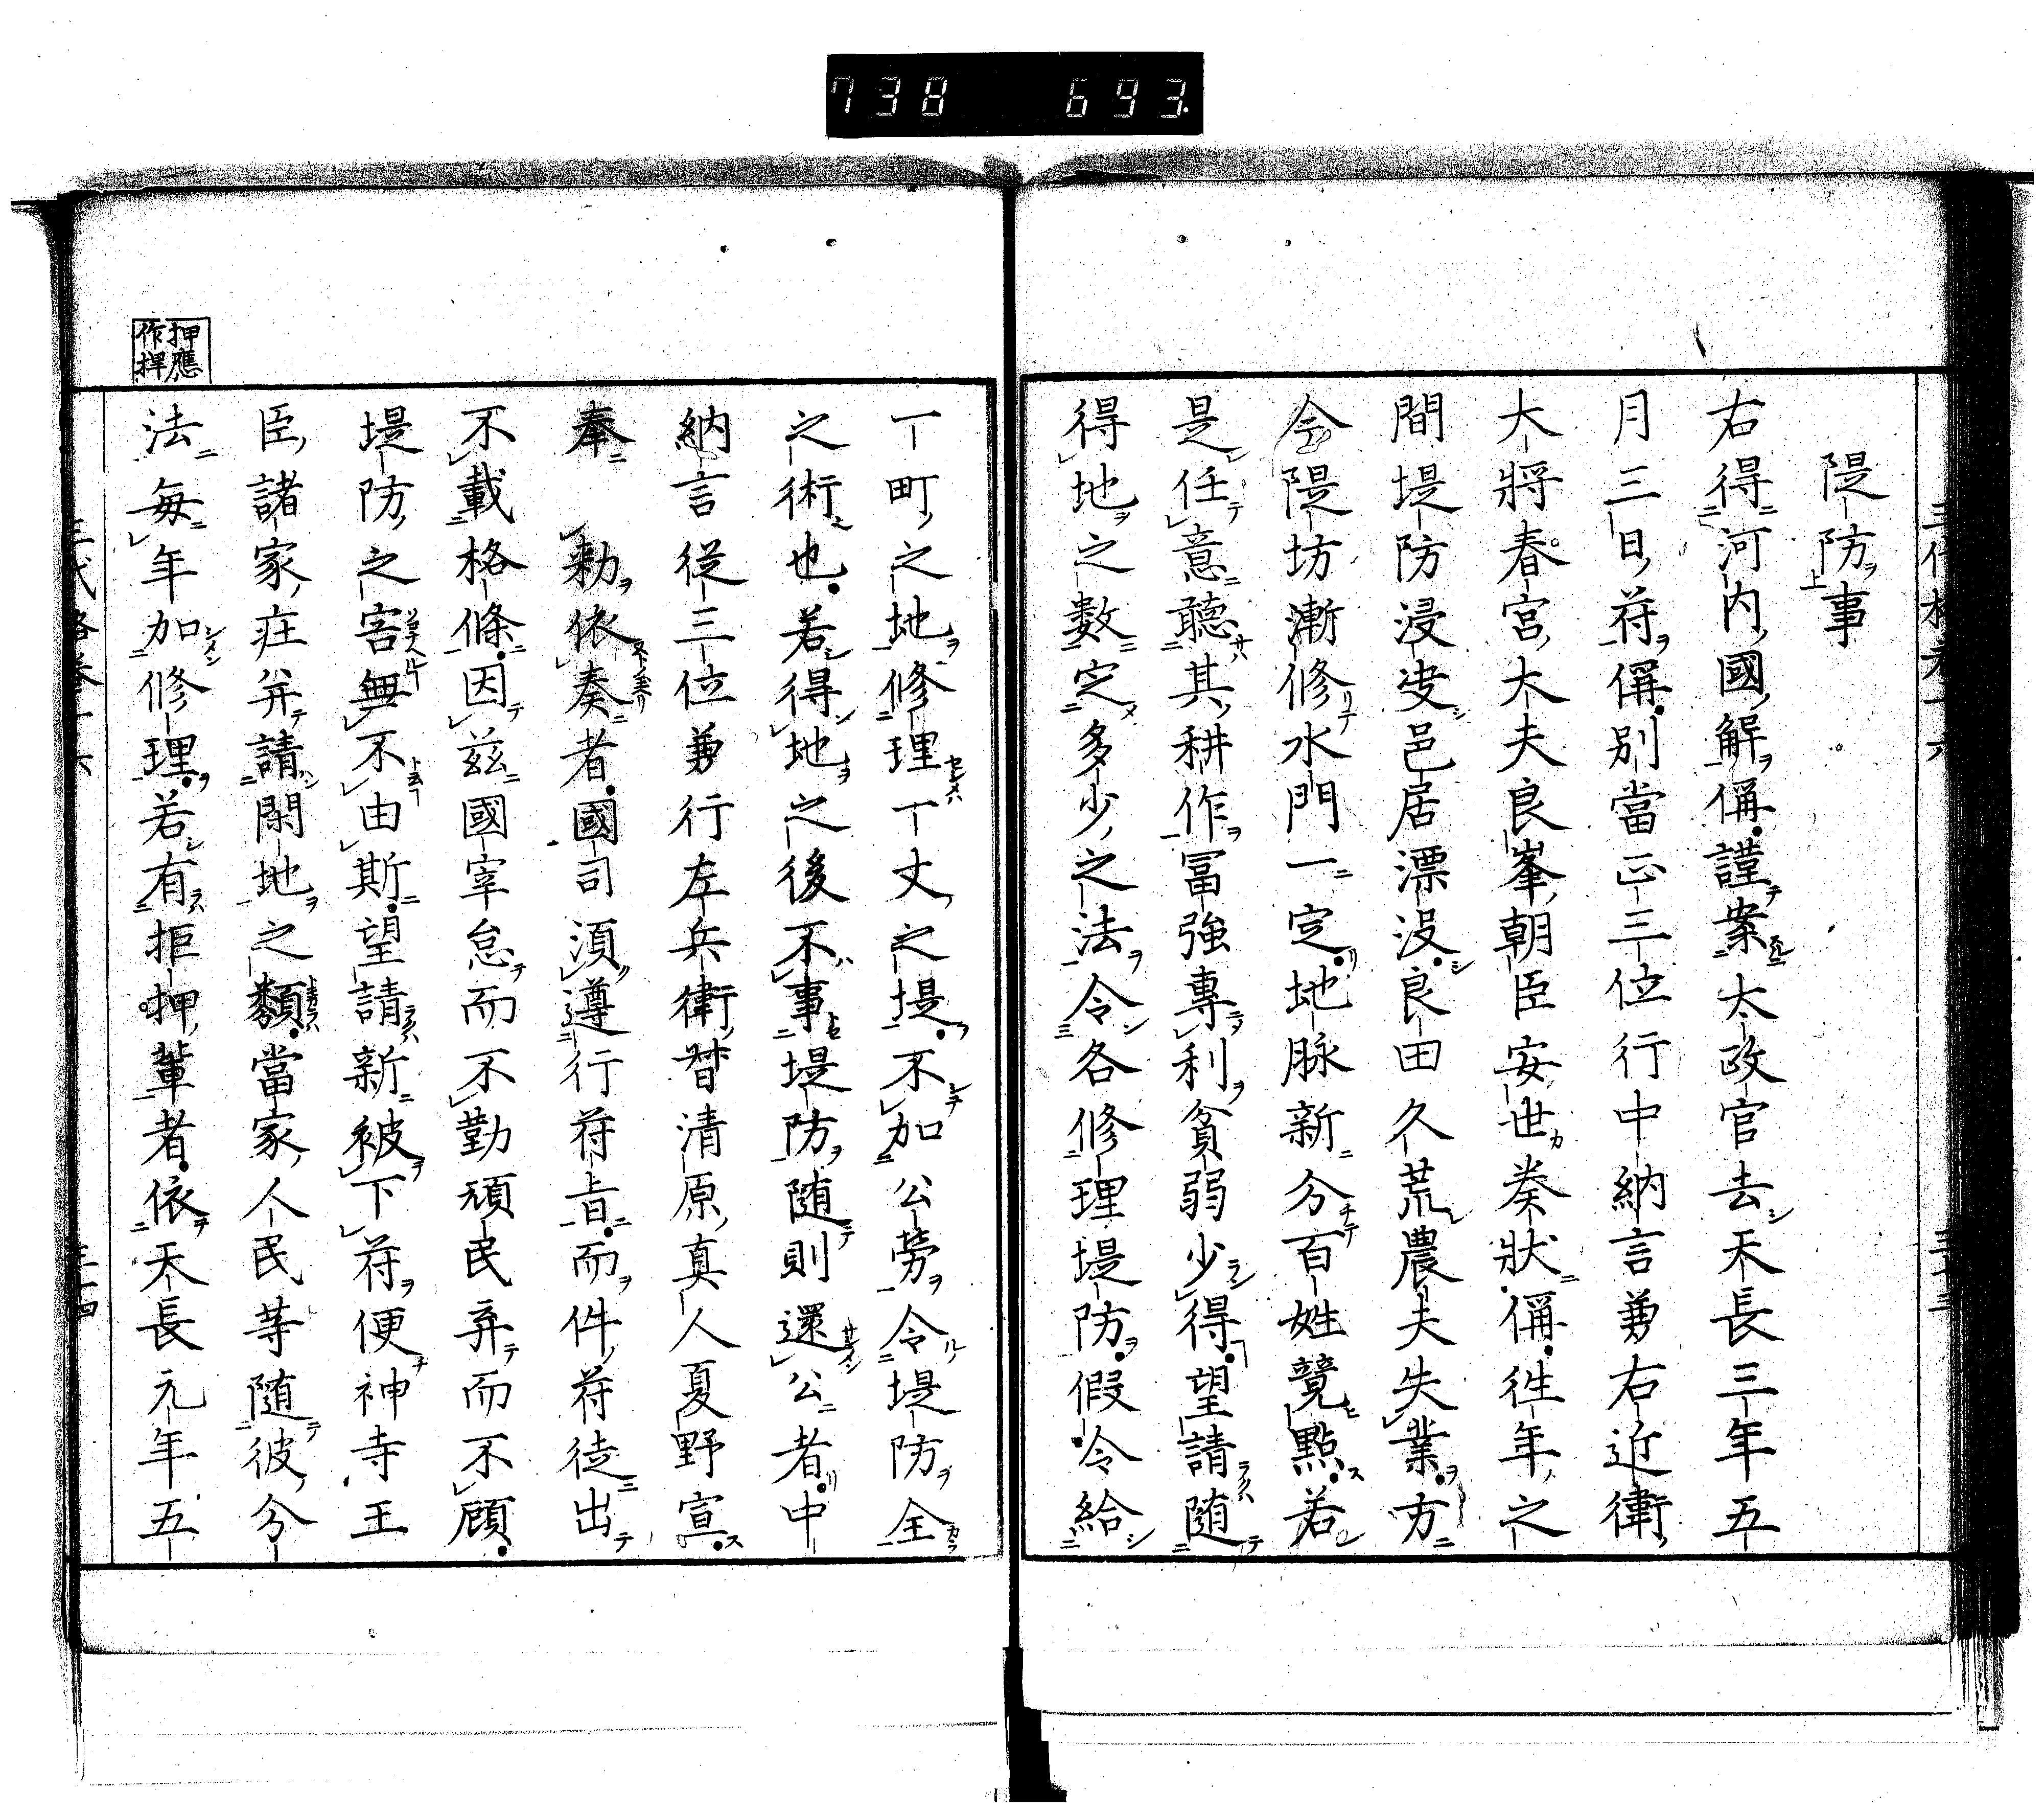 738 693
隄防事
右得河内國解偁謹案太政官去天長三年五
月三日符偁別當正三位行中納言兼右近衛
大將春宮大夫良峯朝臣安世奏狀偁徃年之
間堤防浸决邑居漂没良田久荒農夫失業方
今隄坊漸修水門一定地脉新分百姓競點若
是任意聽其耕作冨強專利貧弱少得望請随
得地之數定多少之法令各修理堤防假令給
一町之地修理一丈之堤不加公勞令堤防全
之術也若得地之後不事堤防随則還公者中
納言従三位兼行左兵衛督清原真人夏野宣
奉 勅依奏者國司須遵行符旨而件符徒出
不載格條因茲國宰怠而不勤頑民弃而不顧
堤防之害無不由斯望請新被下符便神寺王
臣諸家庄并請閑地之類當家人民等随彼分
法毎年加修理若有拒押輩者依天長元年五
押應
作捍